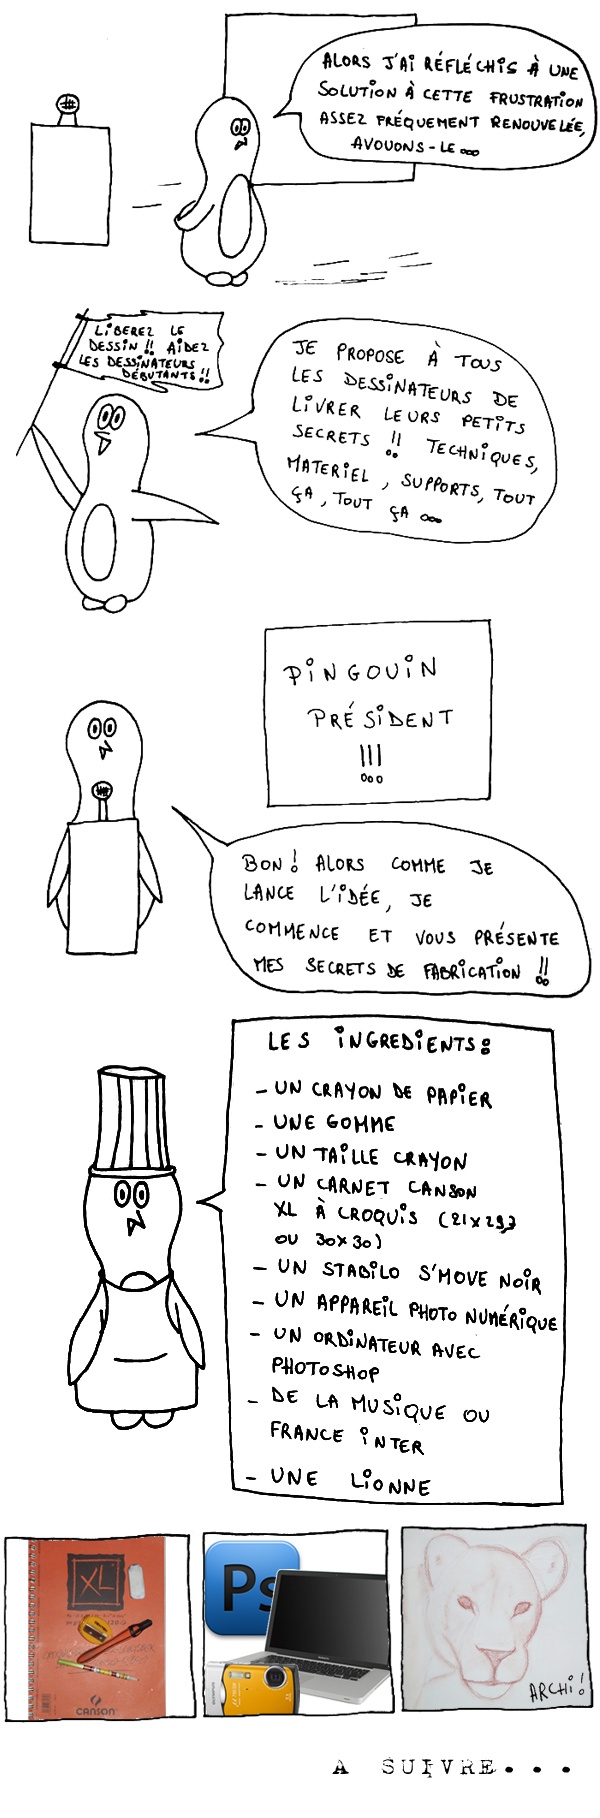 ALORS J'AI RÉFLÉCHIS À UNE
SOLUTION À CETTE FRUSTRATION
ASSEZ FRÉQUEMENT RENOUVELÉE,
AVOUONS-LE...
LIBEREZ LE
DESSIN!! AIDEZ
LES DESSINATEURS
DÉBUTANTS!!
JE PROPOSE À TOUS
LES DESSINATEURS DE
LIVRER LEURS PETITS
SECRETS!! TECHNIQUES,
MATERIEL, SUPPORTS, TOUT
ÇA, TOUT ÇA...
PINGOUIN
PRÉSIDENT
!!!
BON! ALORS COMME JE
LANCE L'IDÉE, JE
COMMENCE ET VOUS PRÉSENTE
MES SECRETS DE FABRICATION!!
LES INGREDIENTS:
- UN CRAYON DE PAPIER
- UNE GOMME
- UN TAILLE CRAYON
- UN CARNET CANSON
XL À CROQUIS (21x29,7
OU 30x30)
- UN STABILO S'MOVE NOIR
- UN APPAREIL PHOTO NUMÉRIQUE
- UN ORDINATEUR AVEC
PHOTOSHOP
- DE LA MUSIQUE OU
FRANCE INTER
- UNE LIONNE
XL
CANSON
Ps
ARCHI!
A SUIVRE...